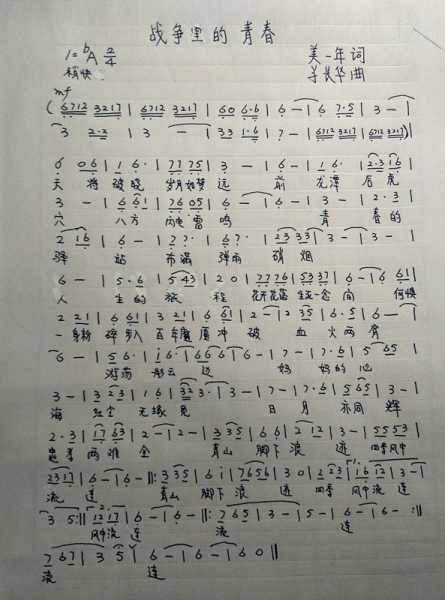 战争里的青春
1=♭A 2/4 美一年词
稍快 曲
mf
(6712 3217 | 6712 3217 | 60 6·6 | 6 - | 6 7·5 | 3 - |
3 2·2 | 3 - | 33 1·6 | 7 - | 6712 3217 | 6712 3217 )|
6 06 | 16· | 77 75 | 3 - | 6 - | 16· | 2·3 16 |
天 将 破晓 岁月如梦 远 前 龙潭 后虎
3 - | 6 61 | 76 05 | 6 - | 6 - | 3 - | 2·3 |
穴 八方 闪电 雷鸣 青 春的
2 16 | 6 - | 7 7· | 6 7· | 23 33 | 3 - | 3 - |
驿 站 布满 弹雨 硝烟
6 - | 5·6 | 5 43 | 2 0 | 77 76 | 53 37 | 6 - | 6 61 |
人 生的 旅 程 花开花落 生死一念间 何惧
2 21 | 6 61 | 3 21 | 6 61 | 2 - | 2 35 | 16·5 | 6 - |
一身粉碎 步入百年 魔魇 冲 破 血火两肩
6 - | 56· | i6· | 66 6 | 6 - | 7 - | 7·6 | 5 65 |
游荡 彩云 边 妈 妈的 心
3 - | 3 23 | 16 | 32 3· | 3 - | 7 - | 7·6 | 5 65 | 3 - |
海 红尘 无缘 见 日 月 亦同 辉
2·3 | 17 63 | 2 - | 2 - | 3 35 | 66 | 2 35 | 3 - | 55 53 |
忠孝 两难 全 青山 脚下 浪 迹 四季风中
23 17 | 6 - | 6 - :‖: 3 35 | 6 i | 76 56 | 3 0 | 2 23 | 16 12 | 3 - |
流 连 青山 脚下 浪 迹 四季 风中流 连
3 5 :‖ 12 17 | 6 - | 6 - ‖: 7 65 | 3 - | 5 - | 6 - | 6 - :‖
风中流 连 流 连
7 67 | 3 5 | 6 - | 6 - | 6 0 ‖
流 连